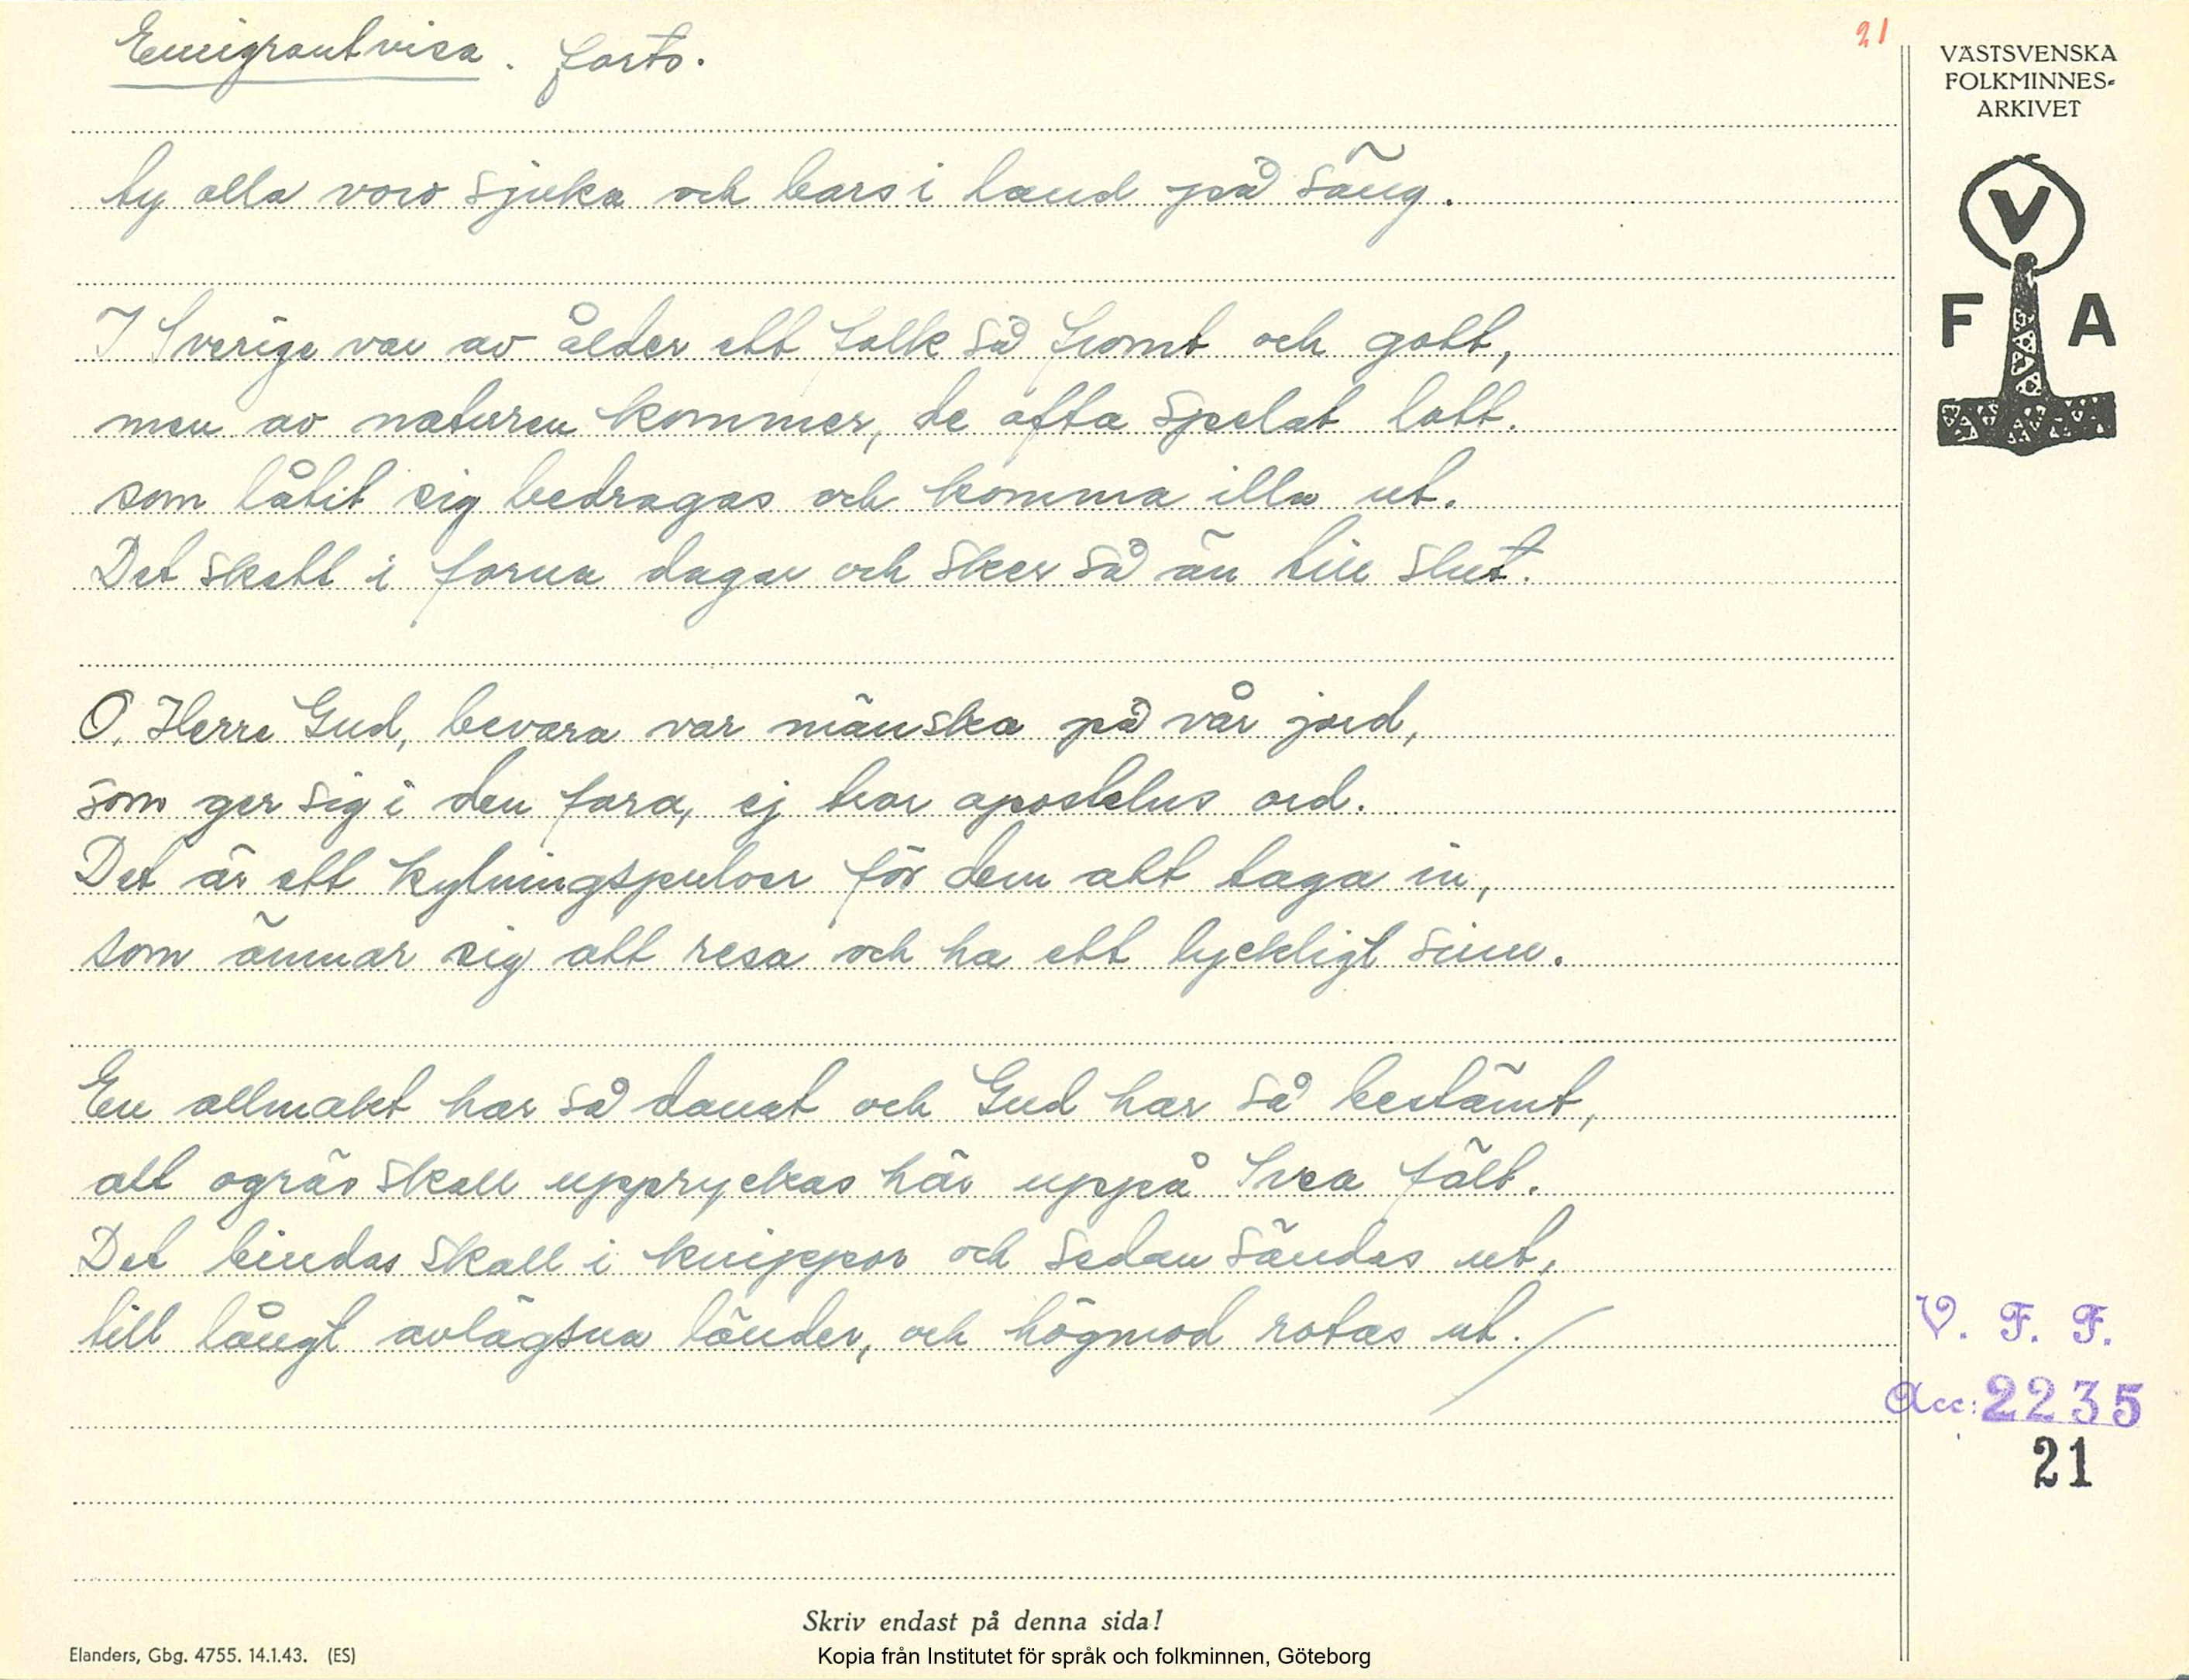 Emigrantvisa. forts.
21
VÄSTSVENSKA
FOLKMINNES-
ARKIVET
V
F A
ty alla voro sjuka och bars i land på säng.
I Sverige var av ålder ett folk så fromt och gott,
men av naturen kommer, de ofta spelat lott.
som låtit sig bedragas och komma illa ut.
Det skett i forna dagar och sker så än till slut.
O, Herre Gud, bevara var mänska på vår jord,
som ger sig i den fara, ej tror apostelns ord.
Det är ett kylningspulver för dem att taga in,
som ämnar sig att resa och ha ett lyckligt sinn.
En allmakt har så danat och Gud har så bestämt,
att ogräs skall uppryckas här uppå Svea fält.
Det bindas skall i knippor och sedan sändas ut,
till långt avlägsna länder, och högmod rotas ut.
V. F. F.
Acc: 2235
21
Skriv endast på denna sida!
Elanders, Gbg. 4755. 14.1.43. (ES)
Kopia från Institutet för språk och folkminnen, Göteborg